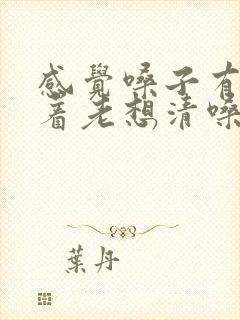 感覺嗓子有
着老想清嗓
葉丹